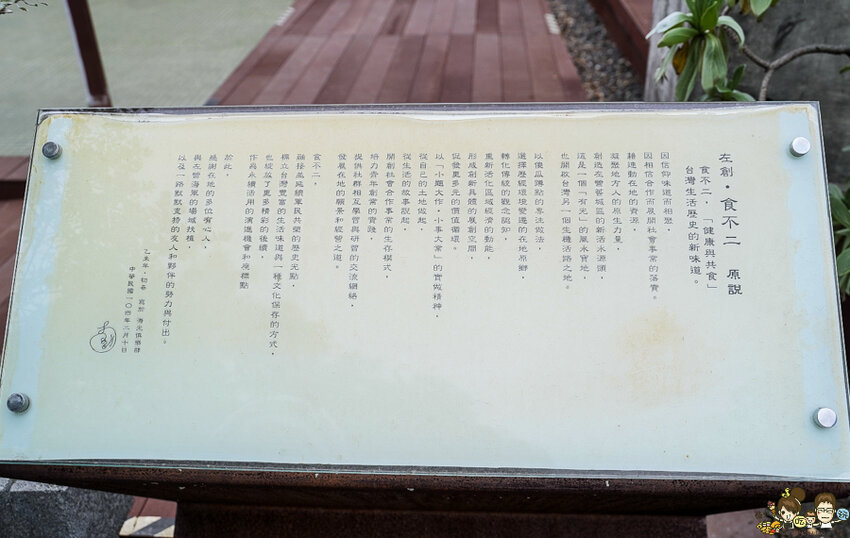 左創・食不二 原說
食不二,「健康與共食」
台灣生活歷史的新味道。
因信仰味道而相惺,
因相信合作而展開社會事業的落實。
藉連動在地的資源,
凝聚地方人的原生力量,
創造左營舊城區的新活水源頭,
這是一個「有光」的風水寶地,
也開啟台灣另一個生機活路之地。
以傻瓜蹲點的專注做法,
選擇歷經環境變遷的在地原鄉,
轉化傳統的觀念認知,
重新活化區域經濟的動能,
形成創新具體的展創空間,
促發更多元的價值循環。
以「小題大作,小事大業」的實做精神,
從自己的土地做起,
從生活的故事說起,
開創社會合作事業的生存模式,
培力青年創業的實踐,
提供社群相互學習與研習的交流網絡,
發展在地的願景和經營之道。
食不二,
銜接並延續軍民共榮的歷史光點,
標立台灣豐富的生活味道與一種文化保存的方式,
也綻放了更多精彩的後續,
作為永續活用的演進機會和亮糖點
於此,
感謝在地的多位有心人,
與左營海軍的場域扶植,
以及一路默默支持的友人和夥伴的努力與付出。
乙未年・初春 寫於 海光俱樂部
中華民國一○四年三月十日